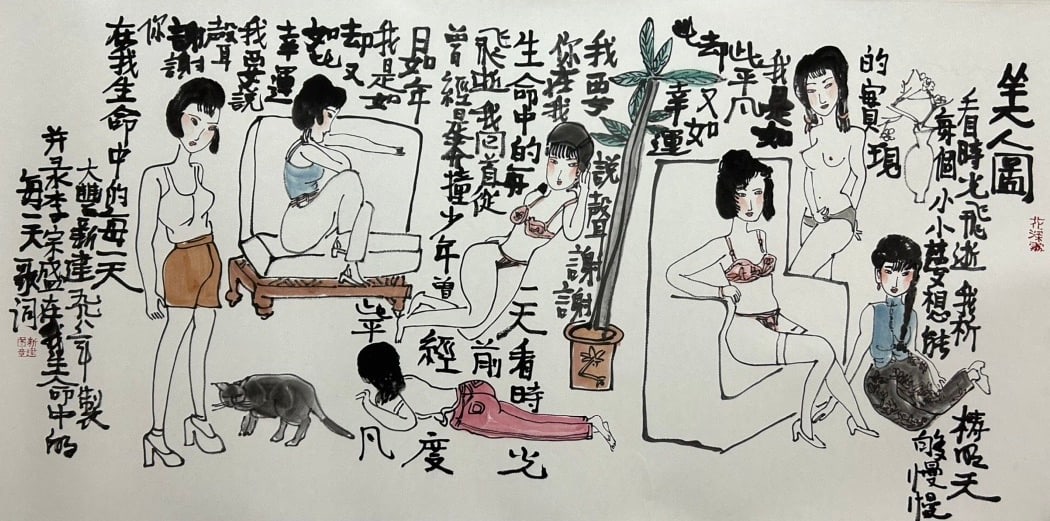 美人圖
看時光飛逝 我祈
禱明天
每個小小夢想能
够慢慢
的實現
我是如
此平凡
却又如
此
幸運
我要
說聲謝謝
你在我
生命中的每
一天 看時光
飛逝 我回首從
前
曾經是莽撞少年 曾
經度
日如年
我是如
此平凡
却又
如此
幸運
我要說
聲
謝謝
你
在我生命中的每一天
大豐新建
年製
并录李宗盛在我生命中的
每一天歌词